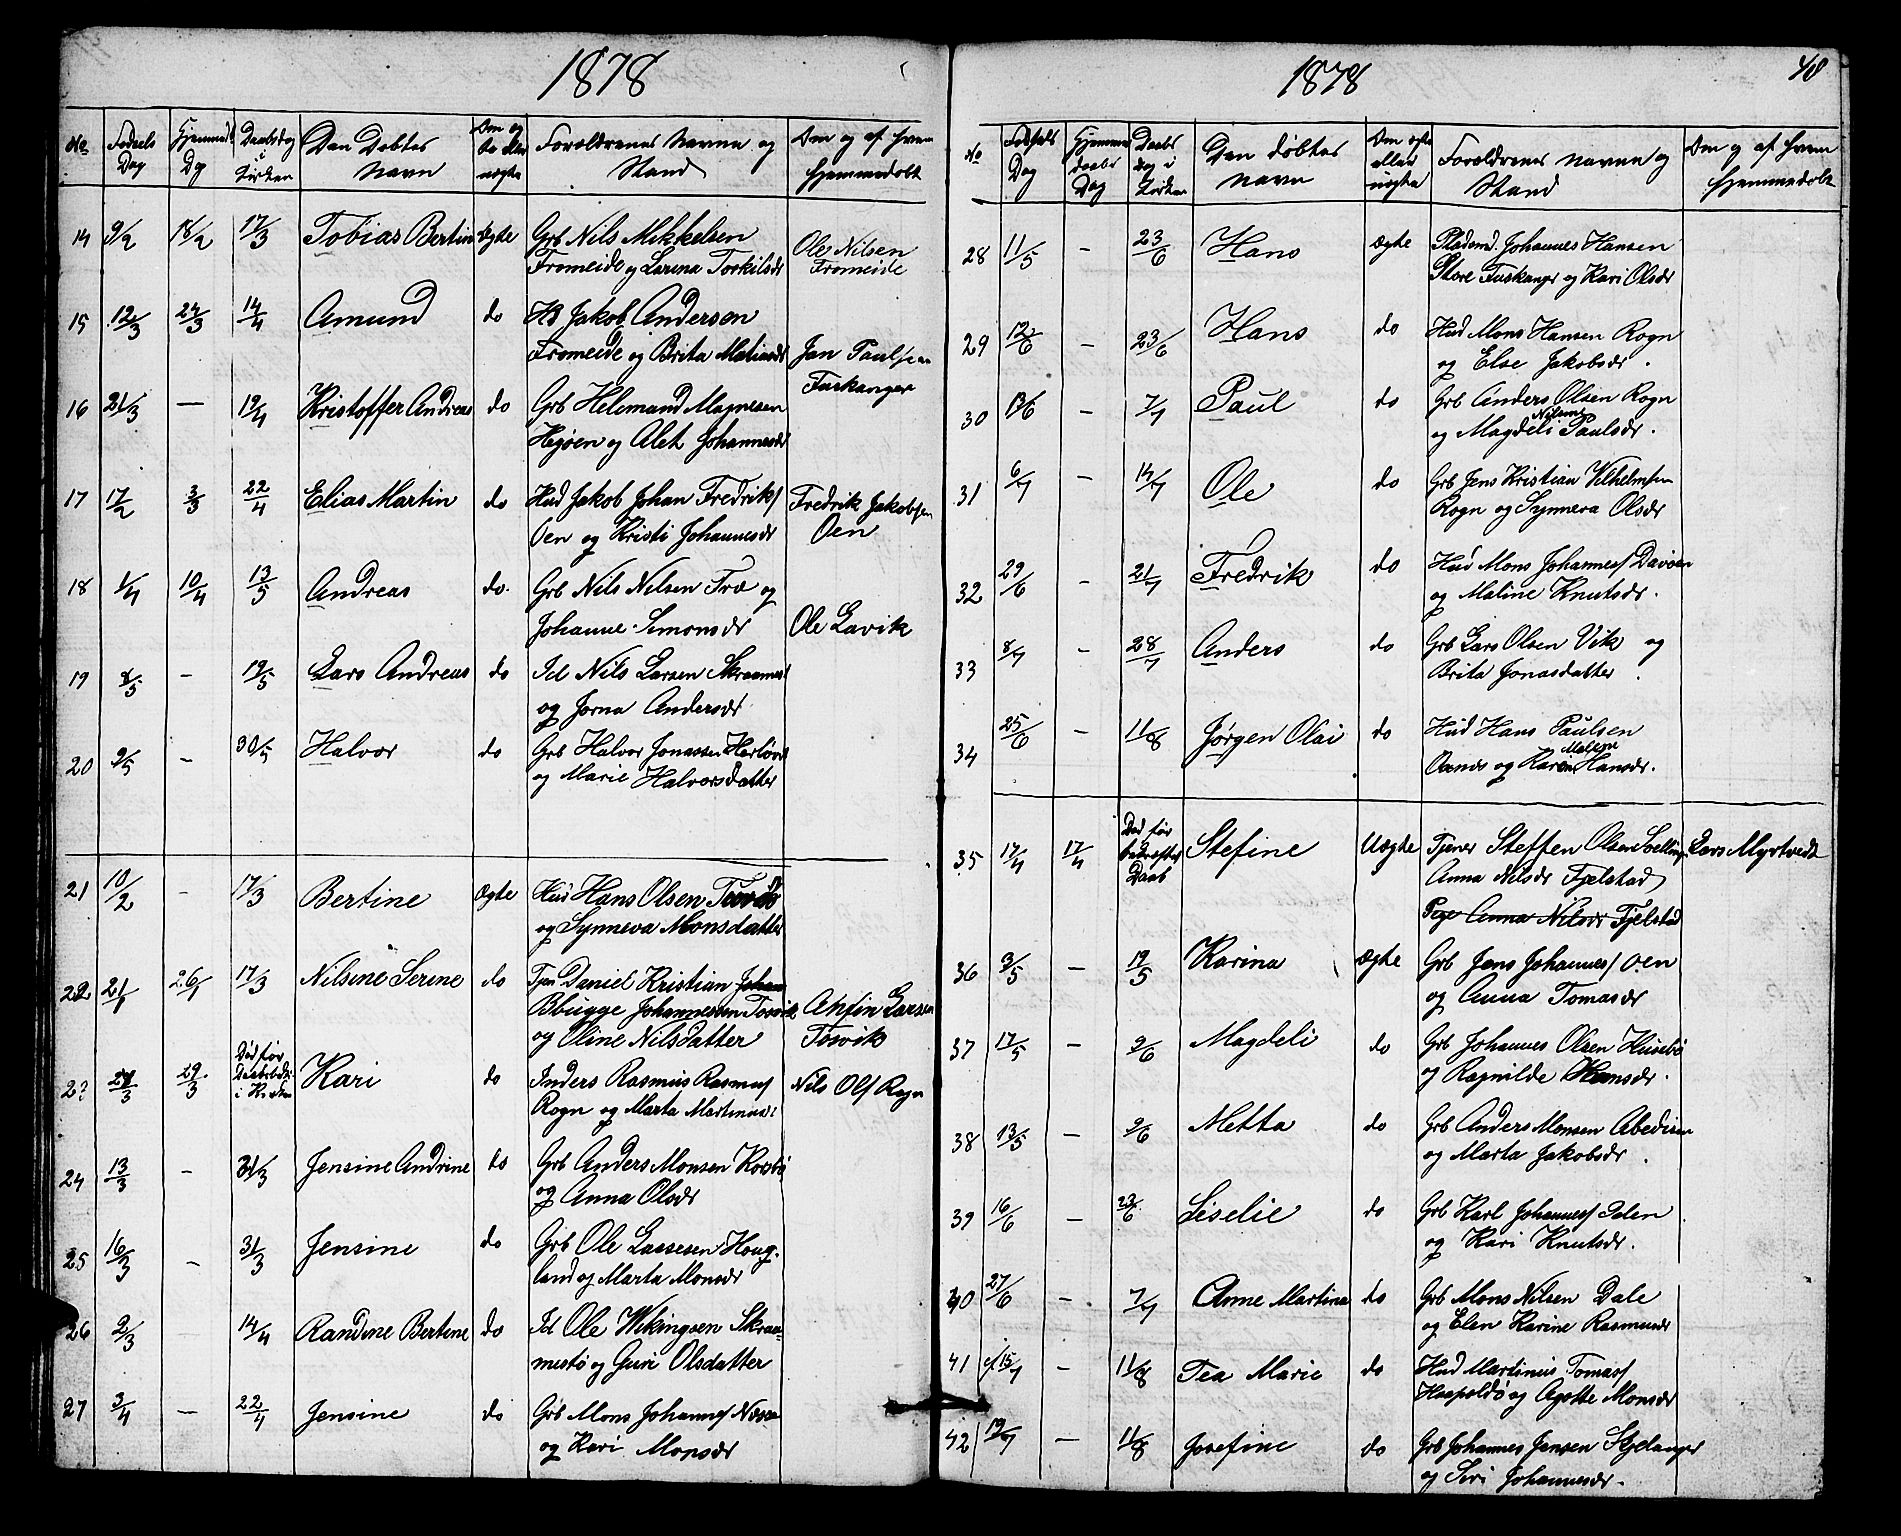 1878
No
Fødsels Dag
Hjemmed. Dg
Daabsdag i Kirken
Den Døbtes Navn
Om eg te eller uegte
Forældrenes Navne og Stand
Om og af hvem hjemmedøbt
14 9/2 18/2 17/3 Tobias Bertin Ægte Grb Nils Mikkelsen
Fromeide og Larina Torkilsdr
Ole Nilsen
Fromeide
15 12/3 24/3 14/4 Amund do Hd Jakob Anderson
Fromeide og Brita Matiasdr
Jan Paulsen
Fuskanger
16 21/3 — 19/4 Kristoffer Andreas do Grb Helemand Magnesen
Hegøen og Alet Johannesdr
17 17/2 3/3 22/4 Elias Martin do Hud Jakob Johan Fredriks/
Oen og Kristi Johannesdr
Fredrik Jakobsen
Oen
18 1/4 10/4 13/5 Andreas do. Grb Nils Nilsen Træ og
Johanne Simonsdr
Ole Lavik
19 8/5 — 19/5 Lars Andreas do Id Nils Larsen Skraamest
og Jorna Andersdr
20 9/5 — 30/5 Halvor do Grb Halvor Jonassen Herløvi
og Marie Halvorsdatter
21 10/2 — 17/3 Bertine Ægte Hud Hans Olsen
og Synneva Monsdatter
22 21/1 26/1 17/3 Nilsine Serine do Tjen Daniel Kristian Johan
Bbugge Johannessen Tosvik
og Oline Nilsdatter
Ahfin Larsen
Tosvik
23 27/3 29/3 Død før Daabsbekr i Kirken Kari do Inders Rasmus Rasmus/
Rogn og Marta Martinusd
Nils Ols Rogn
24 13/3 — 31/3 Jensine Andrine do Grb Anders Monsen Korsbø
og Anna Olsdr
25 16/3 — 31/3 Jensine do Grb Ole Lassesen Houg-
land og Marta Monsdr
26 2/3 14/4 Randine Bertine do Id Ole Wikingsen Skraa-
mestø og Guri Olsdatter
27 3/4 — 22/4 Jensine do Grb Mons Johannes/ Næsse
og Kari Monsdr
1878
40
No
Fødsels Dag
Hjemme daabs Dag
Daabs dag i Kirken
Den døbtes Navn
Om ægte eller uægte
Forældrenes Navne og Stand
Om og af hvem hjemmedøbt
28 11/5 — 23/6 Hans Ægte Pladsmd. Johannes Hansen
Store Fuskanger og Kari Olsdr
29 12/6 — 23/6 Hans do Hud Mons Hansen Rogn
og Else Jakobsdr.
30 13/6 — 7/7 Paul do Grb Anders Olsen Rogn
og Magdeli Nilsine Paulsdr.
31 6/7 — 14/7 Ole do Grb Jens Kristian Vilhelmsen
Rogn og Synnera Olsdr
32 29/6 — 21/7 Fredrik do Hud Mons Johannes/ Davøen
og Maline Knutsdr.
33 8/7 — 28/7 Anders do Grb Lars Olsen Vik og
Brita Jonasdatter.
34 25/6 — 11/8 Jørgen Olai do Hud Hans Paulsen
Oanes og Karen Malene Hansdr.
35 17/4 17/4 Død før bekræftet Daab Stefine Uægte Tjener Steffen Olsen Solling
Anna Nilsdr Fjelstad
Pige Anna Nilsdr Fjelstad
Lars Myrtvedt
36 3/5 — 19/5 Karina Ægte Grb Jens Johannes/ Oen
og Anna Tomasdr
37 17/5 — 9/6 Magdeli do Grb Johannes Olsen Husebø
og Ragnilde Hansdr.
38 13/5 — 9/6 Metta do Grb Anders Monsen Abedisen
og Marta Jakobsdr.
39 16/6 — 23/6 Liselie do Grb Karl Johannes/ Oden
og Kari Knutsdr.
40 27/6 — 7/7 Anne Martina do Grb Mons Nilsen Dale
og Elen Karine Rasmusdr
41 15/7 — 11/8 Tea Marie do Hud Martinus Tomas/
Haapoldø og Agotte Monsdr
42 19/7 — 11/8 Josefine do Grb Johannes Jensen Skjelanger
og Siri Johannesdr.